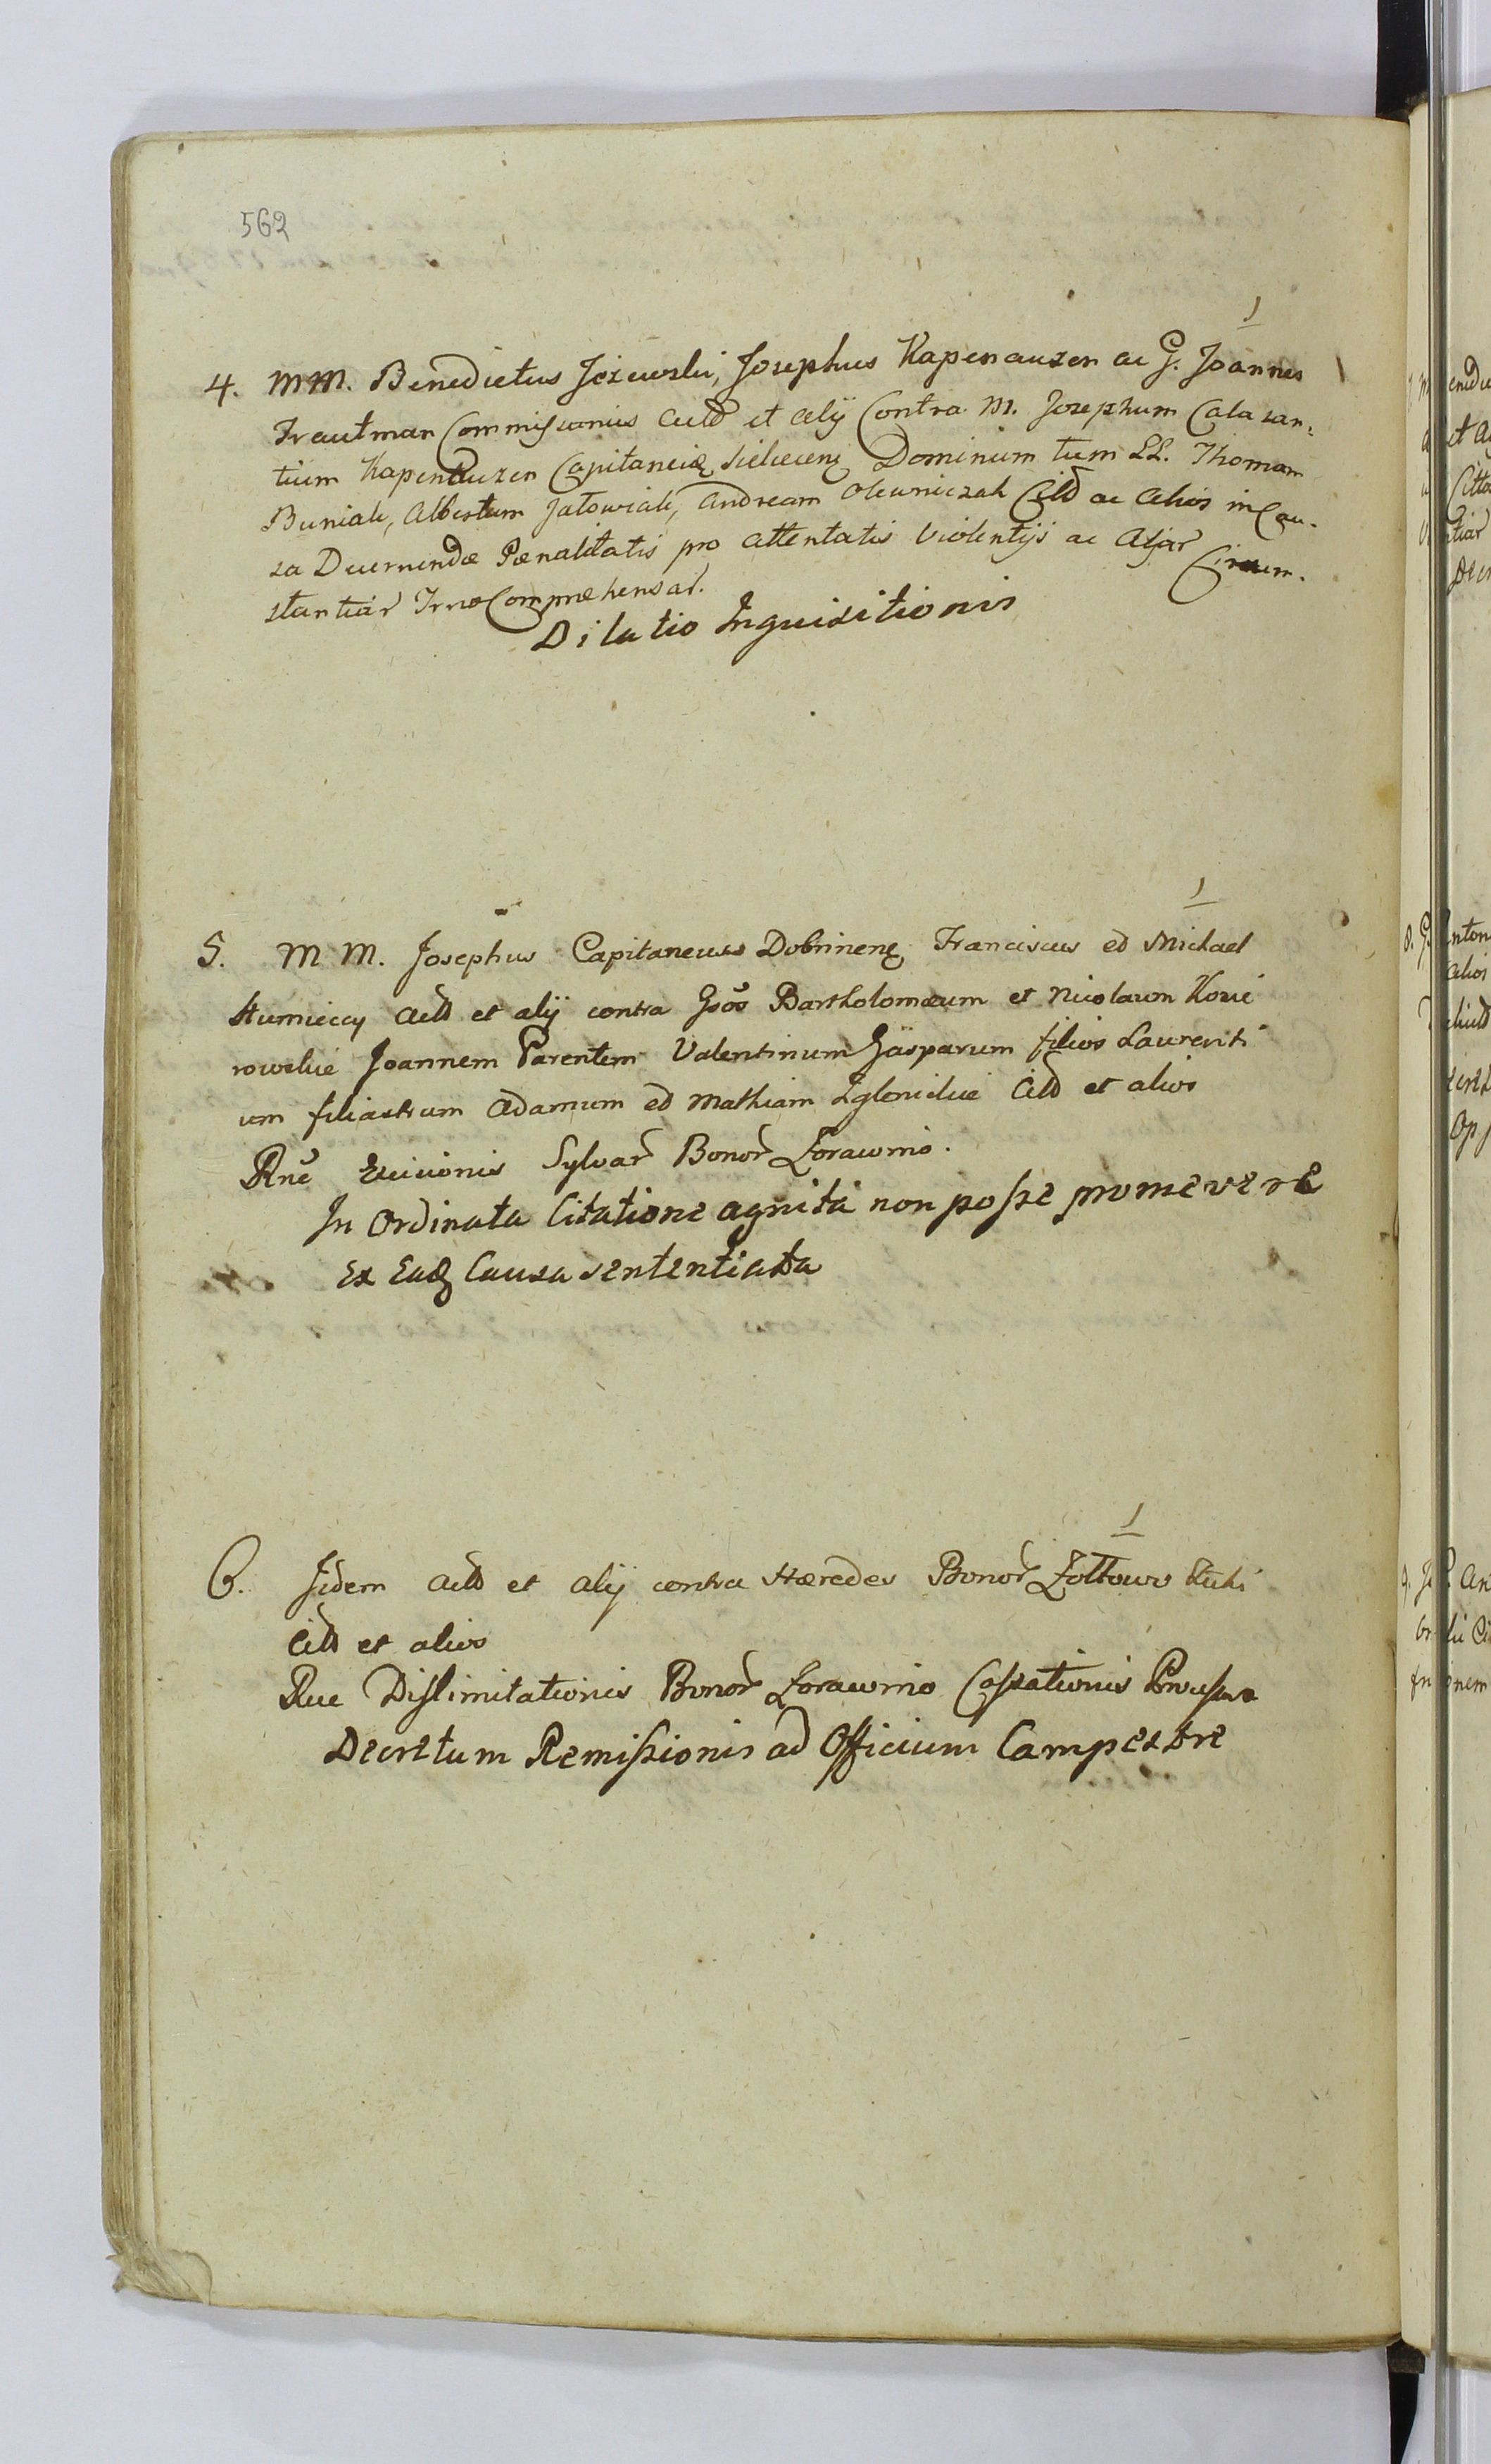 562
1
4. MM. Benedictus Jezewski, Josephus Kapenauzen ac G. Joannes
Trautman Commissarius Actd et alij Contra M. Josephum Calasan-
tium Kapenauzen Capitaneię Sieluceń Dominum tum LL. Thomam
Buniak, Albertum Jatowiak, Andream Olewniczak Citd ac alios in Cau-
sa Decernendæ Pænalitatis pro attentatis Violentijs ac Aliar Circum-
stantiar Trno Comprehensar.
Dilatio Inquisitionis
1
5. MM. Josephus Capitaneus Dobrinenę Franciscus ed Michael
Actd et alij contra Gsos Bartholomæum et Nicolaum
Joannem Parentem Valentinum Gasparum filios Laurenti
um filiastrum Adamum ed Mathiam Citd et alios
Rnē Excisionis Sylvar Bonor Zorawino.
In Ordinata Citatione agnita non posse promovere
Ex Eadę Causa sententiata
1
6. Iidem Actd et alij contra Hæredes Bonor Zottowo
Citd et alios
Rne Dislimitationis Bonor Zorawino Cassationis Processus
Decretum Remissionis ad Officium Campestre